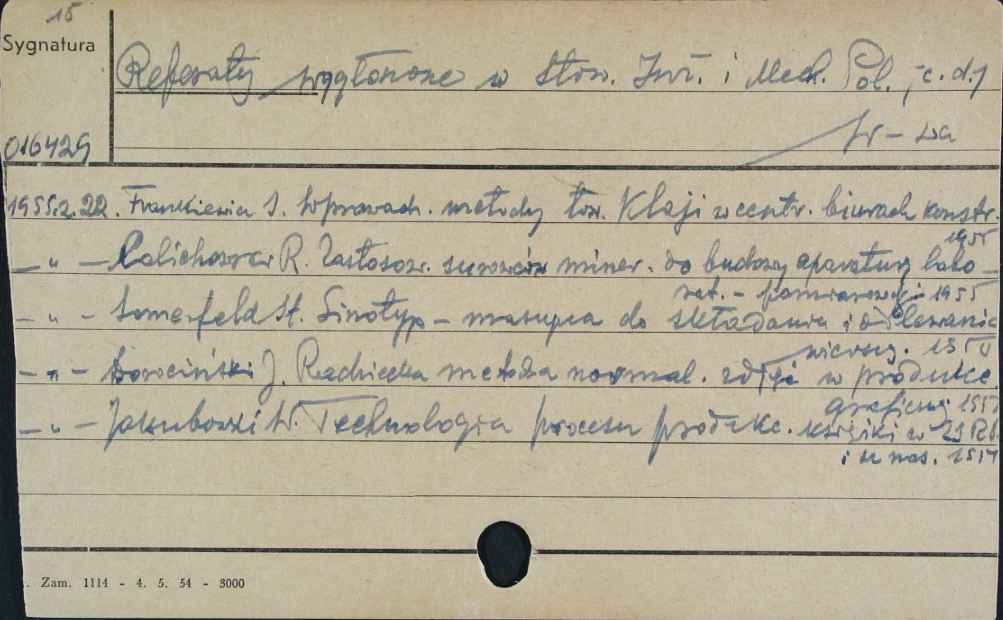 15
Sygnatura
Referaty wygłoszone w Stow. Inż. i Mech. Pol. /c. d./
016429
W-wa
1955.2.22. Frankiewicz S. Wprowadz. metody tow. w centr. biurach konstr.
1955
— " — R. Zastosow. surowców miner. do budowy aparatury labo-
rat. - pomiarowej 1955
— " — Somerfeld St. Linotyp - maszyna do składania i odlewania
wierszy. 195
— " — Sorociński J. Radziecka metoda normal. zdjęć w produkc.
graficznej 195
— " — Jakubowski W. Technologia procesu produkc. książki w ZSRR
i u nas. 195
Zam. 1114 - 4. 5. 54 - 3000